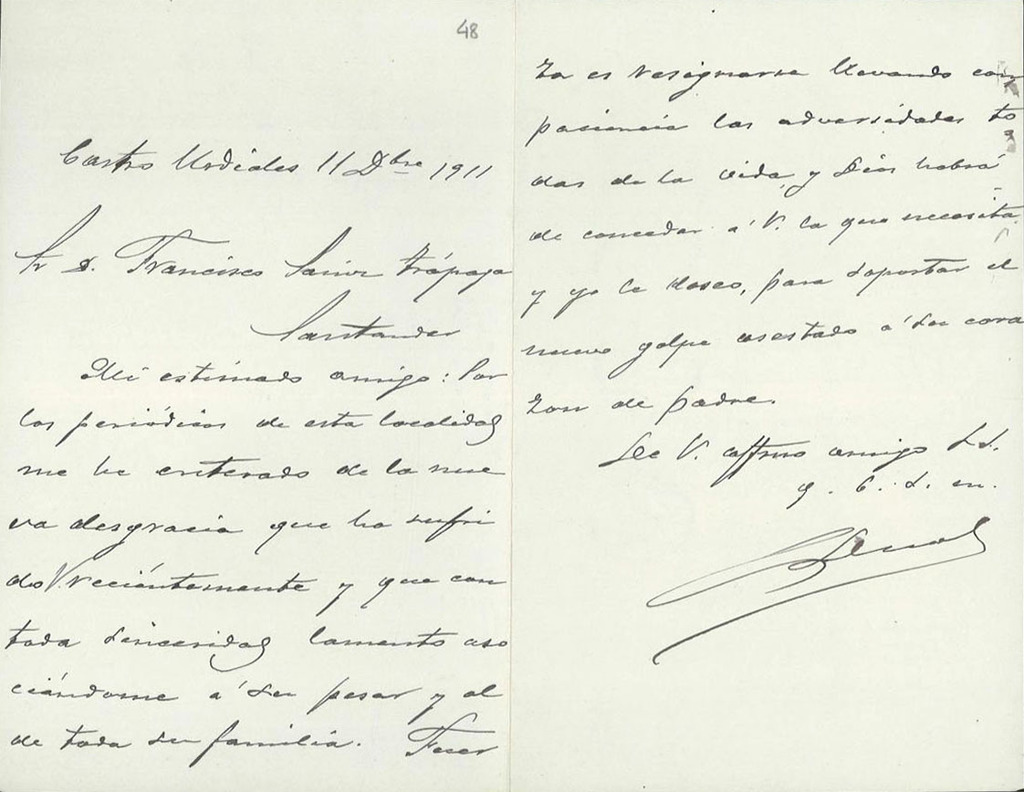 48
Castro Urdiales 11 Dbre 1911
Sr D. Francisco Sainz Trápaga
Santander
Mi estimado amigo: Por
los periódicos de esta localidad
me he enterado de la nue
va desgracia que ha sufri
do V. recientemente y que con
toda sinceridad lamento aso
ciándome á su pesar y al
de toda su familia. Fuer
za es resignarse llevando con
paciencia las adversidades to
das de la vida, y Dios habrá
de conceder á V. la que necesita
y yo le deseo, para soportar el
nuevo golpe asestado á su cora
zon de padre.
De V. affmo amigo s.s.
q. b. s. m.